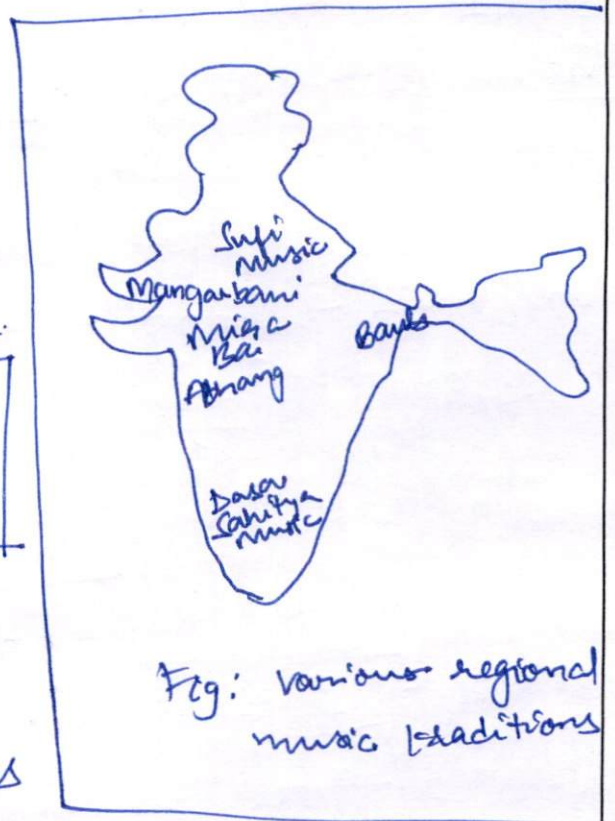 Sufi
music
Mangarbani
Mira
Bai
Abhang
Bauls
Dasa
Sahitya
music
Fig: various regional
music traditions